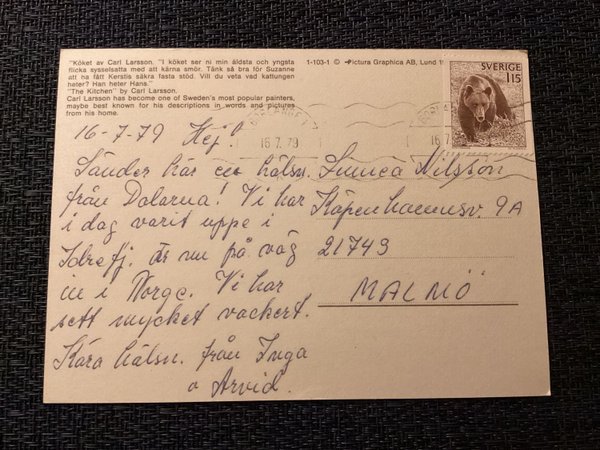 "Köket av Carl Larsson. "I köket ser ni min äldsta och yngsta
flicka sysselsatta med att kärna smör. Tänk så bra för Suzanne
att na fått Kerstis säkra fasta stöd. Vill du veta vad kattungen
heter? Han heter Hans."
"The Kitchen" by Carl Larsson.
Carl Larsson has become one of Sweden's most popular painters,
maybe best known for his descriptions in words and pictures
from his home.
1-103-1 © Pictura Graphica AB, Lund
SVERIGE
115
16.7.79
16-7-79 Hej!
Sänder här en hälsn.
från Dalarna! Vi har
i dag varit uppe i
Idrefj. är nu på väg
in i Norge. Vi har
sett mycket vackert.
Kära hälsn. från Inga
o Arvid.
Linnea Nilsson
Köpenhamnsv. 9A
21743
MALMÖ